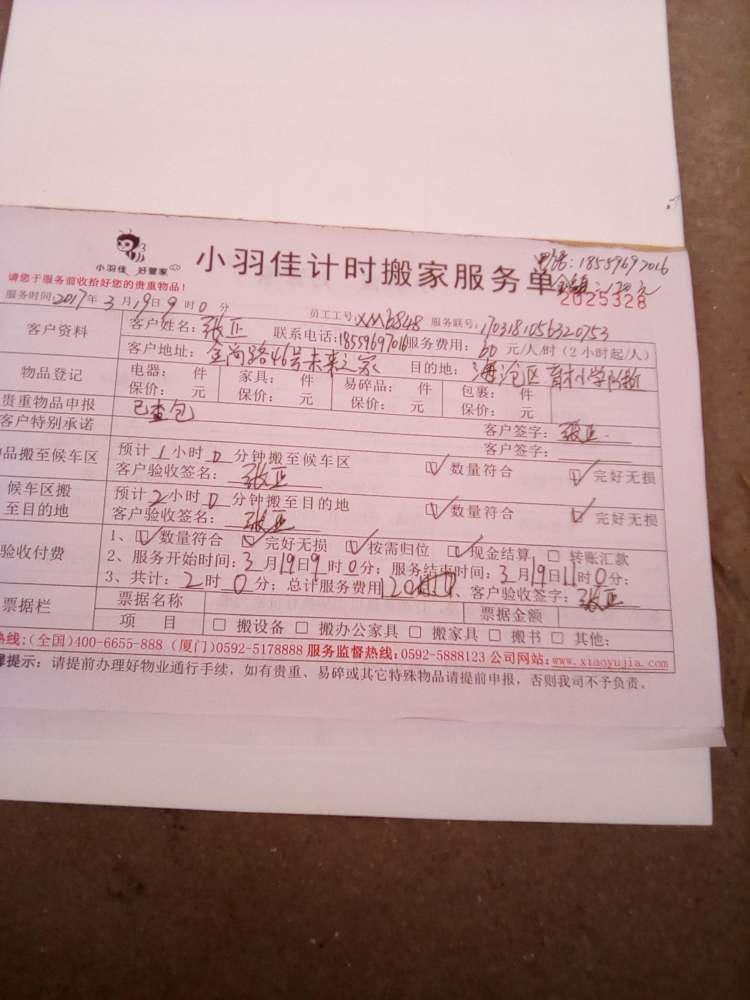 小羽佳 好管家
小羽佳计时搬家服务单
电话：18559697016
2025328
请您于服务前收拾好您的贵重物品！
服务时间：2017年3月19日9时0分
员工工号：XM6848 服务联号：1703181056320753
客户资料
客户姓名：张正 联系电话：18559697016 服务费用：60元/人/时（2小时起/人）
客户地址：金尚路46号未来之家 目的地：海沧区育才小学
物品登记
电器： 件 家具： 件 易碎品： 件 包裹： 件
保价： 元 保价： 元 保价： 元 保价： 元
贵重物品申报 已查包 客户签字：张正
客户特别承诺 客户签字：
品搬至候车区
预计1小时0分钟搬至候车区 数量符合 完好无损
客户验收签名：张正
候车区搬至目的地
预计2小时0分钟搬至目的地 数量符合 完好无损
客户验收签名：张正
验收付费
1、数量符合 完好无损 按需归位 现金结算 转账汇款
2、服务开始时间：3月19日9时0分；服务结束时间：3月19日11时0分；
3、共计：2时0分；总计服务费用120 客户验收签字：张正
票据栏
票据名称 票据金额
项 目 搬设备 搬办公家具 搬家具 搬书 其他：
热线：(全国)400-6655-888 (厦门)0592-5178888 服务监督热线：0592-5888123 公司网站：www.xiaoyujia.com
提示：请提前办理好物业通行手续，如有贵重、易碎或其它特殊物品请提前申报，否则我司不予负责。